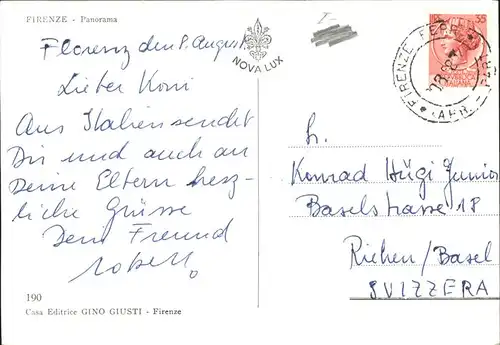 FIRENZE - Panorama
Florenz den 8. August
Lieber Koni
Aus Italien sendet
Dir und auch an
Deine Eltern herz-
liche Grüsse
Dein Freund
Robert
190
Casa Editrice GINO GIUSTI - Firenze
NOVA LUX
35
FIRENZE FERR
ITALIANA
Hr.
Konrad Hügi Junior
Baselstrasse 18
Riehen/Basel
SVIZZERA